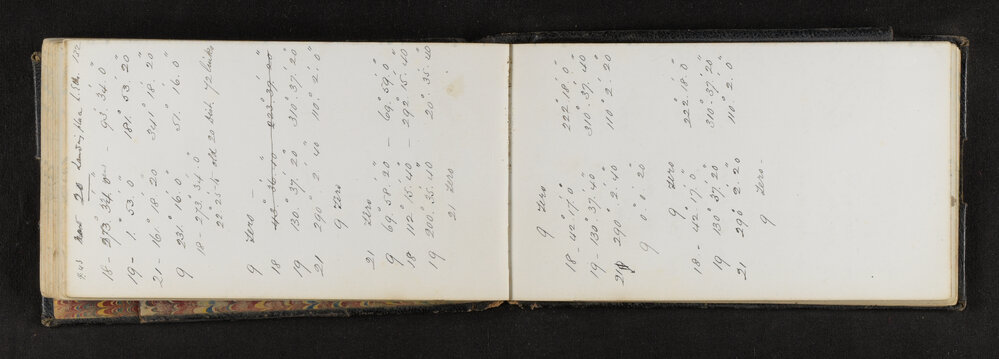 9.43 now 20 Landing place L.5th. 152
18 - 273° 34' 0" - 93° 34' 0"
19 - 1° 53' 0" 181° 53' 20"
21 - 161° 18' 20 341° 18' 20"
9 231° 16' 0" 51° 16' 0"
18 - 273° 34' 0"
22.25.15 old 20 dist. 72 links
9 Zero -
18 43° 38' 40" 223° 39' 20"
19 130° 37' 20 310° 37' 20"
21 290° 2' 40 110° 2' 0"
9 Zero
21 Zero
9 69° 58' 20 - 69° 59' 0"
18 112° 15' 40 - 292° 15' 40
19 200° 35' 40 20° 35' 40
21 Zero
9 Zero
18 - 42° 17' 0" 222° 18' 0"
19 - 130° 37' 40" 310° 37' 40
21 290° 2' 40 110° 2' 20
9 0° 0' 20
9 Zero
18 - 42° 17' 0" 222° 18' 0"
19 130° 37' 20 310° 37' 20
21 290° 2' 20 110° 2' 0"
9 Zero -